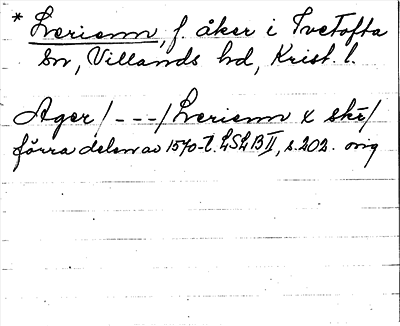 * Lverienn, f. åker i Tvetofta
sn, Villands hd, Krist. l.
Ager / - - - / Lverienn x skr /
förra delen av 1570-t. LSLB II, s. 202. orig